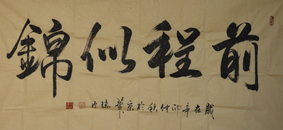 前程似錦
歲在辛卯仲秋於京華